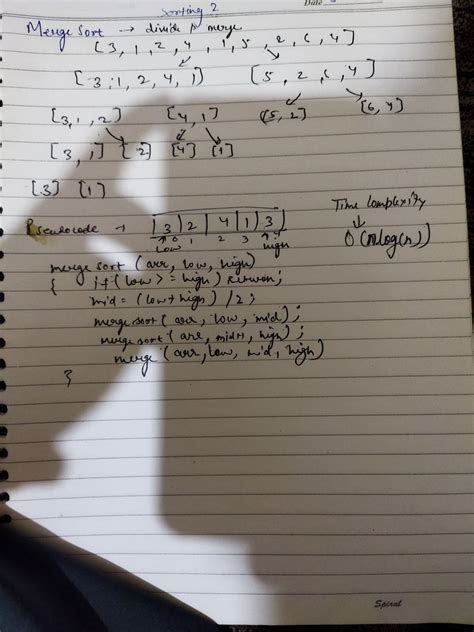 Sorting 2
Date
Merge Sort → divide & merge
[3, 1, 2, 4, 1, 5, 2, 6, 4]
[3, 1, 2, 4, 1] [5, 2, 6, 4]
[3, 1, 2] [4, 1] [5, 2] [6, 4]
[3, 1] [2] [4] [1]
[3] [1]
Time Complexity
O(nlog(n))
Pseudocode → |3|2|4|1|3|
0 1 2 3 4
low high
merge sort (arr, low, high)
{ if (low >= high) return;
mid = (low + high) / 2;
merge sort (arr, low, mid);
merge sort (arr, mid+1, high);
merge (arr, low, mid, high)
}